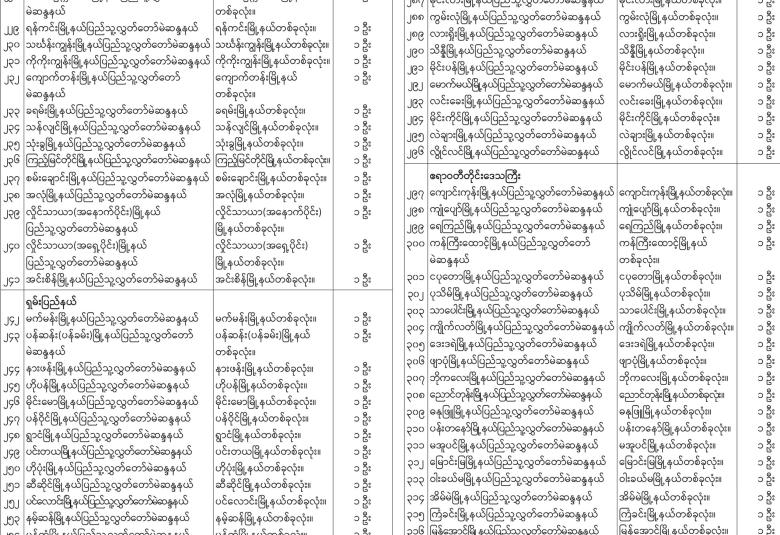 မဲဆန္ဒနယ် တစ်ခုလုံး။
၂၂၉ ရန်ကင်းမြို့နယ်ပြည်သူ့လွှတ်တော်မဲဆန္ဒနယ် ရန်ကင်းမြို့နယ်တစ်ခုလုံး။ ၁ ဦး
၂၃၀ သင်္ဃန်းကျွန်းမြို့နယ်ပြည်သူ့လွှတ်တော်မဲဆန္ဒနယ် သင်္ဃန်းကျွန်းမြို့နယ်တစ်ခုလုံး။ ၁ ဦး
၂၃၁ ကိုကိုးကျွန်းမြို့နယ်ပြည်သူ့လွှတ်တော်မဲဆန္ဒနယ် ကိုကိုးကျွန်းမြို့နယ်တစ်ခုလုံး။ ၁ ဦး
၂၃၂ ကျောက်တန်းမြို့နယ်ပြည်သူ့လွှတ်တော် ကျောက်တန်းမြို့နယ် ၁ ဦး
မဲဆန္ဒနယ် တစ်ခုလုံး။
၂၃၃ ခရမ်းမြို့နယ်ပြည်သူ့လွှတ်တော်မဲဆန္ဒနယ် ခရမ်းမြို့နယ်တစ်ခုလုံး။ ၁ ဦး
၂၃၄ သန်လျင်မြို့နယ်ပြည်သူ့လွှတ်တော်မဲဆန္ဒနယ် သန်လျင်မြို့နယ်တစ်ခုလုံး။ ၁ ဦး
၂၃၅ သုံးခွမြို့နယ်ပြည်သူ့လွှတ်တော်မဲဆန္ဒနယ် သုံးခွမြို့နယ်တစ်ခုလုံး။ ၁ ဦး
၂၃၆ ကြည့်မြင်တိုင်မြို့နယ်ပြည်သူ့လွှတ်တော်မဲဆန္ဒနယ် ကြည့်မြင်တိုင်မြို့နယ်တစ်ခုလုံး။ ၁ ဦး
၂၃၇ စမ်းချောင်းမြို့နယ်ပြည်သူ့လွှတ်တော်မဲဆန္ဒနယ် စမ်းချောင်းမြို့နယ်တစ်ခုလုံး။ ၁ ဦး
၂၃၈ အလုံမြို့နယ်ပြည်သူ့လွှတ်တော်မဲဆန္ဒနယ် အလုံမြို့နယ်တစ်ခုလုံး။ ၁ ဦး
၂၃၉ လှိုင်သာယာ(အနောက်ပိုင်း)မြို့နယ် လှိုင်သာယာ(အနောက်ပိုင်း) ၁ ဦး
ပြည်သူ့လွှတ်တော်မဲဆန္ဒနယ် မြို့နယ်တစ်ခုလုံး။
၂၄၀ လှိုင်သာယာ(အရှေ့ပိုင်း)မြို့နယ် လှိုင်သာယာ(အရှေ့ပိုင်း) ၁ ဦး
ပြည်သူ့လွှတ်တော်မဲဆန္ဒနယ် မြို့နယ်တစ်ခုလုံး။
၂၄၁ အင်းစိန်မြို့နယ်ပြည်သူ့လွှတ်တော်မဲဆန္ဒနယ် အင်းစိန်မြို့နယ်တစ်ခုလုံး။ ၁ ဦး
ရှမ်းပြည်နယ်
၂၄၂ မက်မန်းမြို့နယ်ပြည်သူ့လွှတ်တော်မဲဆန္ဒနယ် မက်မန်းမြို့နယ်တစ်ခုလုံး။ ၁ ဦး
၂၄၃ ပန်ဆန်း(ပန်ခမ်း)မြို့နယ်ပြည်သူ့လွှတ်တော် ပန်ဆန်း(ပန်ခမ်း)မြို့နယ် ၁ ဦး
မဲဆန္ဒနယ် တစ်ခုလုံး။
၂၄၄ နားဖန်းမြို့နယ်ပြည်သူ့လွှတ်တော်မဲဆန္ဒနယ် နားဖန်းမြို့နယ်တစ်ခုလုံး။ ၁ ဦး
၂၄၅ ဟိုပန်မြို့နယ်ပြည်သူ့လွှတ်တော်မဲဆန္ဒနယ် ဟိုပန်မြို့နယ်တစ်ခုလုံး။ ၁ ဦး
၂၄၆ မိုင်းမောမြို့နယ်ပြည်သူ့လွှတ်တော်မဲဆန္ဒနယ် မိုင်းမောမြို့နယ်တစ်ခုလုံး။ ၁ ဦး
၂၄၇ ပန်ဝိုင်မြို့နယ်ပြည်သူ့လွှတ်တော်မဲဆန္ဒနယ် ပန်ဝိုင်မြို့နယ်တစ်ခုလုံး။ ၁ ဦး
၂၄၈ ရွာငံမြို့နယ်ပြည်သူ့လွှတ်တော်မဲဆန္ဒနယ် ရွာငံမြို့နယ်တစ်ခုလုံး။ ၁ ဦး
၂၄၉ ပင်းတယမြို့နယ်ပြည်သူ့လွှတ်တော်မဲဆန္ဒနယ် ပင်းတယမြို့နယ်တစ်ခုလုံး။ ၁ ဦး
၂၅၀ ဟိုပုံးမြို့နယ်ပြည်သူ့လွှတ်တော်မဲဆန္ဒနယ် ဟိုပုံးမြို့နယ်တစ်ခုလုံး။ ၁ ဦး
၂၅၁ ဆီဆိုင်မြို့နယ်ပြည်သူ့လွှတ်တော်မဲဆန္ဒနယ် ဆီဆိုင်မြို့နယ်တစ်ခုလုံး။ ၁ ဦး
၂၅၂ ပင်လောင်းမြို့နယ်ပြည်သူ့လွှတ်တော်မဲဆန္ဒနယ် ပင်လောင်းမြို့နယ်တစ်ခုလုံး။ ၁ ဦး
၂၅၃ နမ့်ဆန်မြို့နယ်ပြည်သူ့လွှတ်တော်မဲဆန္ဒနယ် နမ့်ဆန်မြို့နယ်တစ်ခုလုံး။ ၁ ဦး
၂၈၈ ကွမ်းလုံမြို့နယ်ပြည်သူ့လွှတ်တော်မဲဆန္ဒနယ် ကွမ်းလုံမြို့နယ်တစ်ခုလုံး။ ၁ ဦး
၂၈၉ လားရှိုးမြို့နယ်ပြည်သူ့လွှတ်တော်မဲဆန္ဒနယ် လားရှိုးမြို့နယ်တစ်ခုလုံး။ ၁ ဦး
၂၉၀ သိန္နီမြို့နယ်ပြည်သူ့လွှတ်တော်မဲဆန္ဒနယ် သိန္နီမြို့နယ်တစ်ခုလုံး။ ၁ ဦး
၂၉၁ မိုင်းပန်မြို့နယ်ပြည်သူ့လွှတ်တော်မဲဆန္ဒနယ် မိုင်းပန်မြို့နယ်တစ်ခုလုံး။ ၁ ဦး
၂၉၂ မောက်မယ်မြို့နယ်ပြည်သူ့လွှတ်တော်မဲဆန္ဒနယ် မောက်မယ်မြို့နယ်တစ်ခုလုံး။ ၁ ဦး
၂၉၃ လင်းခေးမြို့နယ်ပြည်သူ့လွှတ်တော်မဲဆန္ဒနယ် လင်းခေးမြို့နယ်တစ်ခုလုံး။ ၁ ဦး
၂၉၄ မိုင်းကိုင်မြို့နယ်ပြည်သူ့လွှတ်တော်မဲဆန္ဒနယ် မိုင်းကိုင်မြို့နယ်တစ်ခုလုံး။ ၁ ဦး
၂၉၅ လဲချားမြို့နယ်ပြည်သူ့လွှတ်တော်မဲဆန္ဒနယ် လဲချားမြို့နယ်တစ်ခုလုံး။ ၁ ဦး
၂၉၆ လွိုင်လင်မြို့နယ်ပြည်သူ့လွှတ်တော်မဲဆန္ဒနယ် လွိုင်လင်မြို့နယ်တစ်ခုလုံး။ ၁ ဦး
ဧရာဝတီတိုင်းဒေသကြီး
၂၉၇ ကျောင်းကုန်းမြို့နယ်ပြည်သူ့လွှတ်တော်မဲဆန္ဒနယ် ကျောင်းကုန်းမြို့နယ်တစ်ခုလုံး။ ၁ ဦး
၂၉၈ ကျုံပျော်မြို့နယ်ပြည်သူ့လွှတ်တော်မဲဆန္ဒနယ် ကျုံပျော်မြို့နယ်တစ်ခုလုံး။ ၁ ဦး
၂၉၉ ရေကြည်မြို့နယ်ပြည်သူ့လွှတ်တော်မဲဆန္ဒနယ် ရေကြည်မြို့နယ်တစ်ခုလုံး။ ၁ ဦး
၃၀၀ ကန်ကြီးထောင့်မြို့နယ်ပြည်သူ့လွှတ်တော် ကန်ကြီးထောင့်မြို့နယ် ၁ ဦး
မဲဆန္ဒနယ် တစ်ခုလုံး။
၃၀၁ ငပုတောမြို့နယ်ပြည်သူ့လွှတ်တော်မဲဆန္ဒနယ် ငပုတောမြို့နယ်တစ်ခုလုံး။ ၁ ဦး
၃၀၂ ပုသိမ်မြို့နယ်ပြည်သူ့လွှတ်တော်မဲဆန္ဒနယ် ပုသိမ်မြို့နယ်တစ်ခုလုံး။ ၁ ဦး
၃၀၃ သာပေါင်းမြို့နယ်ပြည်သူ့လွှတ်တော်မဲဆန္ဒနယ် သာပေါင်းမြို့နယ်တစ်ခုလုံး။ ၁ ဦး
၃၀၄ ကျိုက်လတ်မြို့နယ်ပြည်သူ့လွှတ်တော်မဲဆန္ဒနယ် ကျိုက်လတ်မြို့နယ်တစ်ခုလုံး။ ၁ ဦး
၃၀၅ ဒေးဒရဲမြို့နယ်ပြည်သူ့လွှတ်တော်မဲဆန္ဒနယ် ဒေးဒရဲမြို့နယ်တစ်ခုလုံး။ ၁ ဦး
၃၀၆ ဖျာပုံမြို့နယ်ပြည်သူ့လွှတ်တော်မဲဆန္ဒနယ် ဖျာပုံမြို့နယ်တစ်ခုလုံး။ ၁ ဦး
၃၀၇ ဘိုကလေးမြို့နယ်ပြည်သူ့လွှတ်တော်မဲဆန္ဒနယ် ဘိုကလေးမြို့နယ်တစ်ခုလုံး။ ၁ ဦး
၃၀၈ ညောင်တုန်းမြို့နယ်ပြည်သူ့လွှတ်တော်မဲဆန္ဒနယ် ညောင်တုန်းမြို့နယ်တစ်ခုလုံး။ ၁ ဦး
၃၀၉ ဓနုဖြူမြို့နယ်ပြည်သူ့လွှတ်တော်မဲဆန္ဒနယ် ဓနုဖြူမြို့နယ်တစ်ခုလုံး။ ၁ ဦး
၃၁၀ ပန်းတနော်မြို့နယ်ပြည်သူ့လွှတ်တော်မဲဆန္ဒနယ် ပန်းတနော်မြို့နယ်တစ်ခုလုံး။ ၁ ဦး
၃၁၁ မအူပင်မြို့နယ်ပြည်သူ့လွှတ်တော်မဲဆန္ဒနယ် မအူပင်မြို့နယ်တစ်ခုလုံး။ ၁ ဦး
၃၁၂ မြောင်းမြမြို့နယ်ပြည်သူ့လွှတ်တော်မဲဆန္ဒနယ် မြောင်းမြမြို့နယ်တစ်ခုလုံး။ ၁ ဦး
၃၁၃ ဝါးခယ်မမြို့နယ်ပြည်သူ့လွှတ်တော်မဲဆန္ဒနယ် ဝါးခယ်မမြို့နယ်တစ်ခုလုံး။ ၁ ဦး
၃၁၄ အိမ်မဲမြို့နယ်ပြည်သူ့လွှတ်တော်မဲဆန္ဒနယ် အိမ်မဲမြို့နယ်တစ်ခုလုံး။ ၁ ဦး
၃၁၅ ကြံခင်းမြို့နယ်ပြည်သူ့လွှတ်တော်မဲဆန္ဒနယ် ကြံခင်းမြို့နယ်တစ်ခုလုံး။ ၁ ဦး
၃၁၆ မြန်အောင်မြို့နယ်ပြည်သူ့လွှတ်တော်မဲဆန္ဒနယ် မြန်အောင်မြို့နယ်တစ်ခုလုံး။ ၁ ဦး